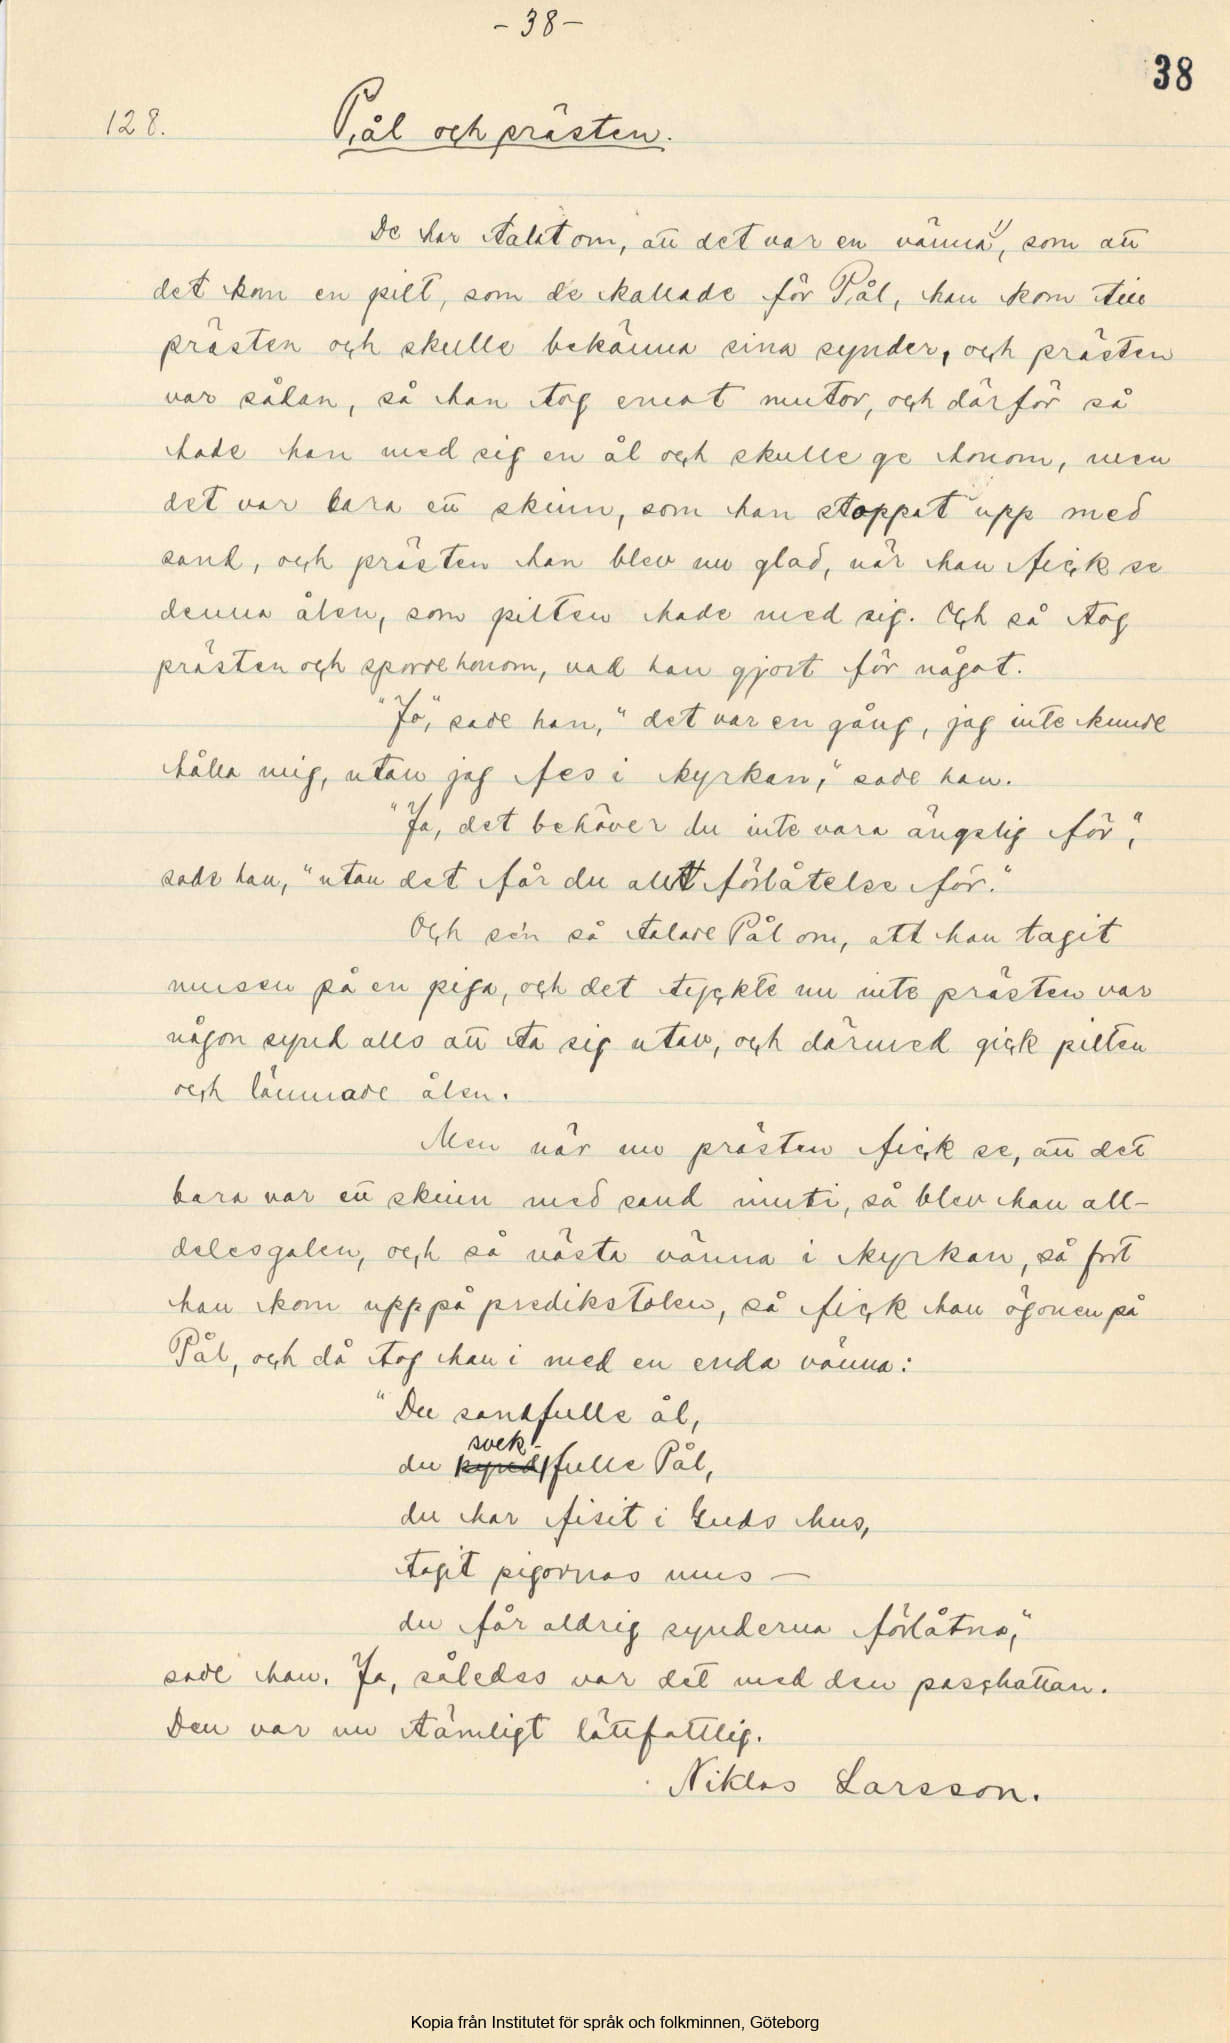 -38-
38
128.
Pål och prästen.
De har talat om, att det var en vänna", som att
det kom en pilt, som de kallade för Pål, han kom till
prästen och skulle bekänna sina synder, och prästen
var sådan, så han tog emot mutor, och därför så
hade han med sig en ål och skulle ge honom, men
det var bara ett skinn, som han stoppat upp med
sand, och prästen han blev nu glad, när han fick se
denna ålen, som pilten hade med sig. Och så tog
prästen och sporde honom, vad han gjort för något.
"Jo," sade han, "det var en gång, jag inte kunde
hålla mig, utan jag fes i kyrkan," sade han.
"Ja, det behöver du inte vara ängslig för",
sade han, "utan det får du allt förlåtelse för."
Och sén så talade Pål om, att han tagit
musen på en piga, och det tyckte nu inte prästen var
någon synd alls att ta sig utav, och därmed gick pilten
och lämnade ålen.
Men när nu prästen fick se, att det
bara var ett skinn med sand inuti, så blev han all-
delesgalen, och så nästa vänna i kyrkan, så fort
han kom upp på predikstolen, så fick han ögonen på
Pål, och då tog han i med en enda vänna:
"Du sandfulle ål,
svek-
du fulle Pål,
du har fisit i Guds hus,
tagit pigornas mus —
du får aldrig synderna förlåtna,"
sade han. Ja, således var det med den paschattan.
Den var nu tämligt lättfattlig.
Niklas Larsson.
Kopia från Institutet för språk och folkminnen, Göteborg